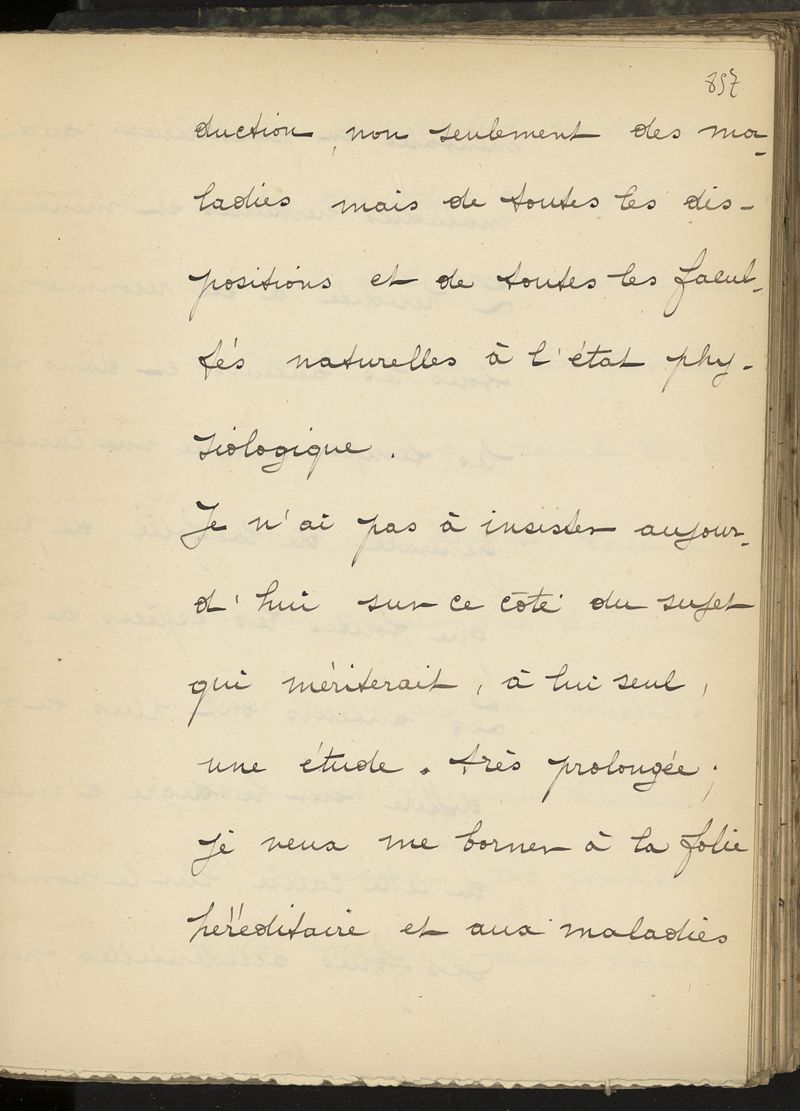 857
duction, non seulement des ma-
ladies mais de toutes les dis-
positions et de toutes les facul-
tés naturelles à l'état phy-
siologique.
Je n'ai pas à insister aujour-
d'hui sur ce côté du sujet
qui mériterait, à lui seul,
une étude très prolongée;
je veux me borner à la folie
héréditaire et aux maladies